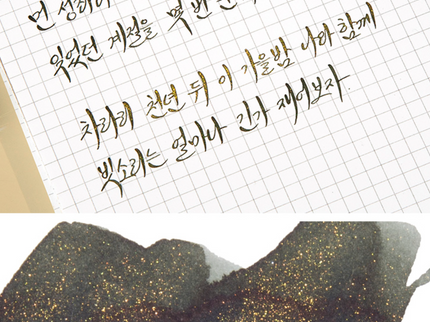 먼
잊었던 계절을 몇 번
차라리 천년 뒤 이 가을밤 나와 함께
빗소리는 얼마나 긴가 재어보자.